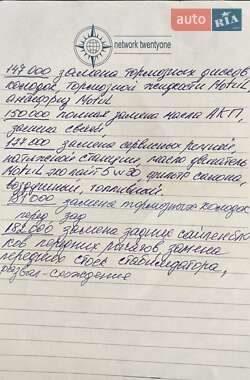 auto RIA
network twentyone
147 000 замена тормозных дисков
колодок, тормозной жидкости Motul,
антифриз Motul
150 000 полная замена масла АКПП,
замена свечей,
157 000 замена сервисных ремней,
натяжной станции, масло двигатель
Motul эколайт 5w30, фильтр салона,
воздушный, топливный.
181 000 замена тормозных колодок
перед зад
182 000 замена задние сайлентбло
ков передних рычагов, замена
передних стоек стабилизатора,
развал-схождения